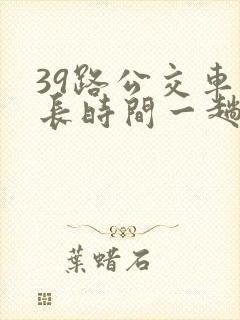 39路公交車
長時間一趟
葉蜡石